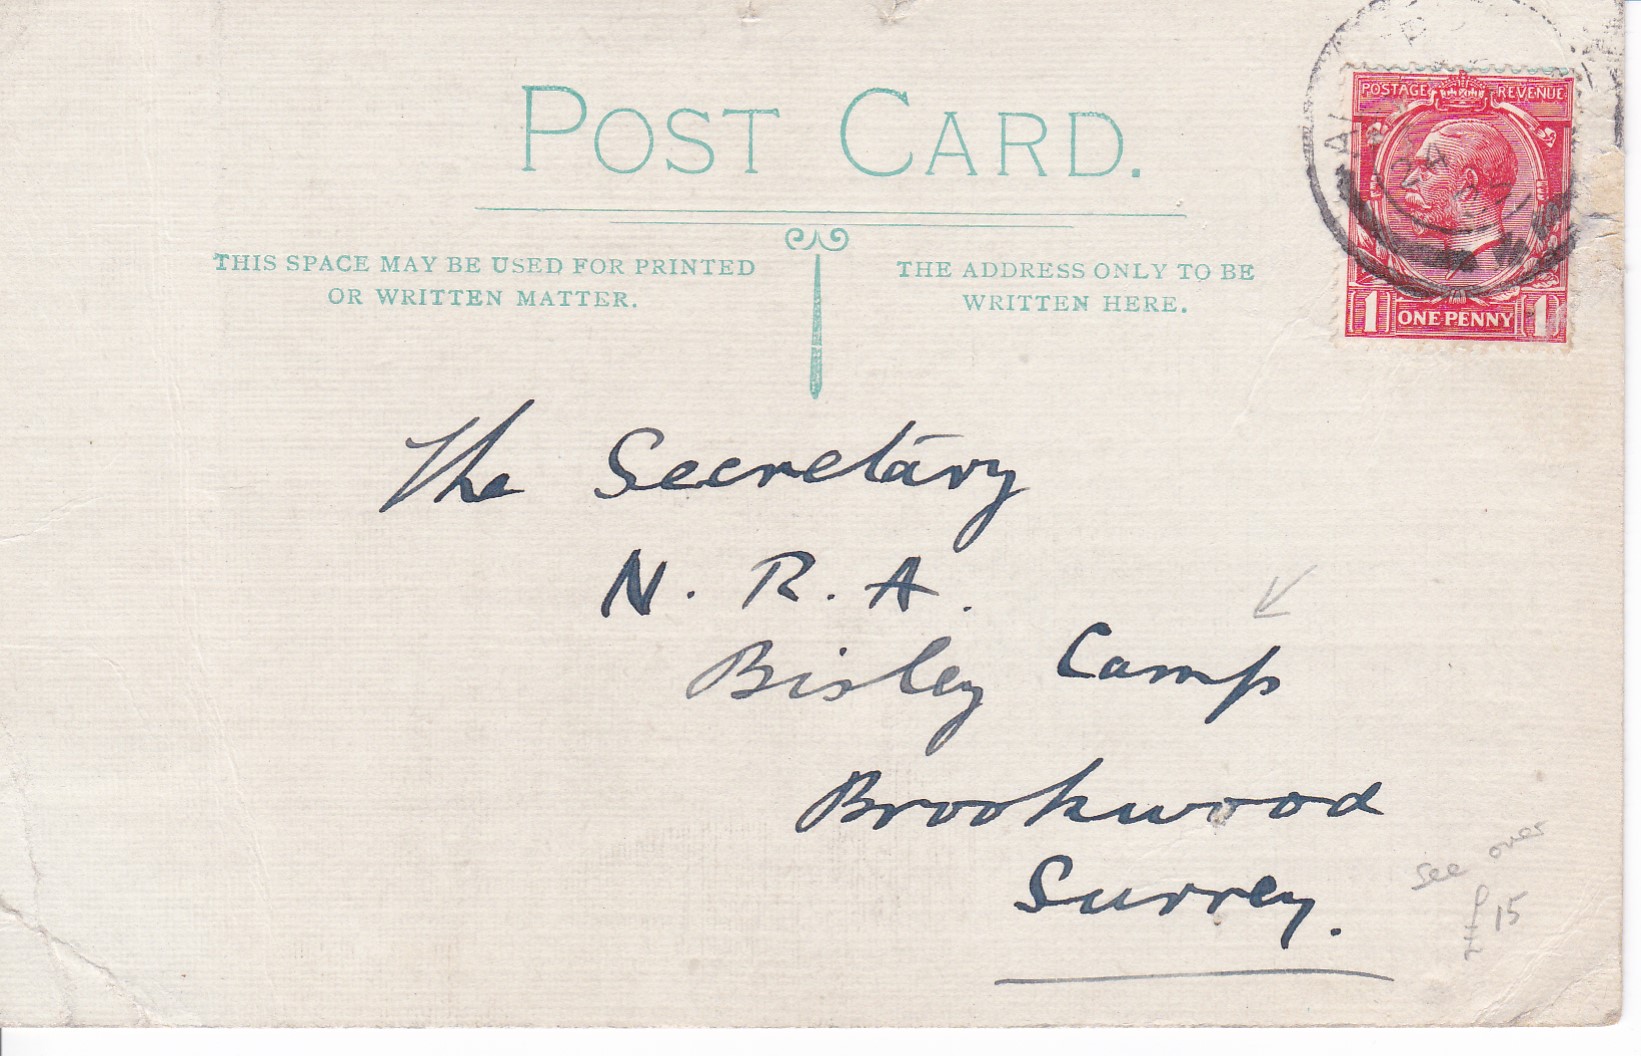 POST CARD.
POSTAGE REVENUE
THIS SPACE MAY BE USED FOR PRINTED
OR WRITTEN MATTER.
THE ADDRESS ONLY TO BE
WRITTEN HERE.
1 ONE PENNY 1
The Secretary
N. R. A.
Bisley Camp
Brookwood
Surrey.
see over
£15